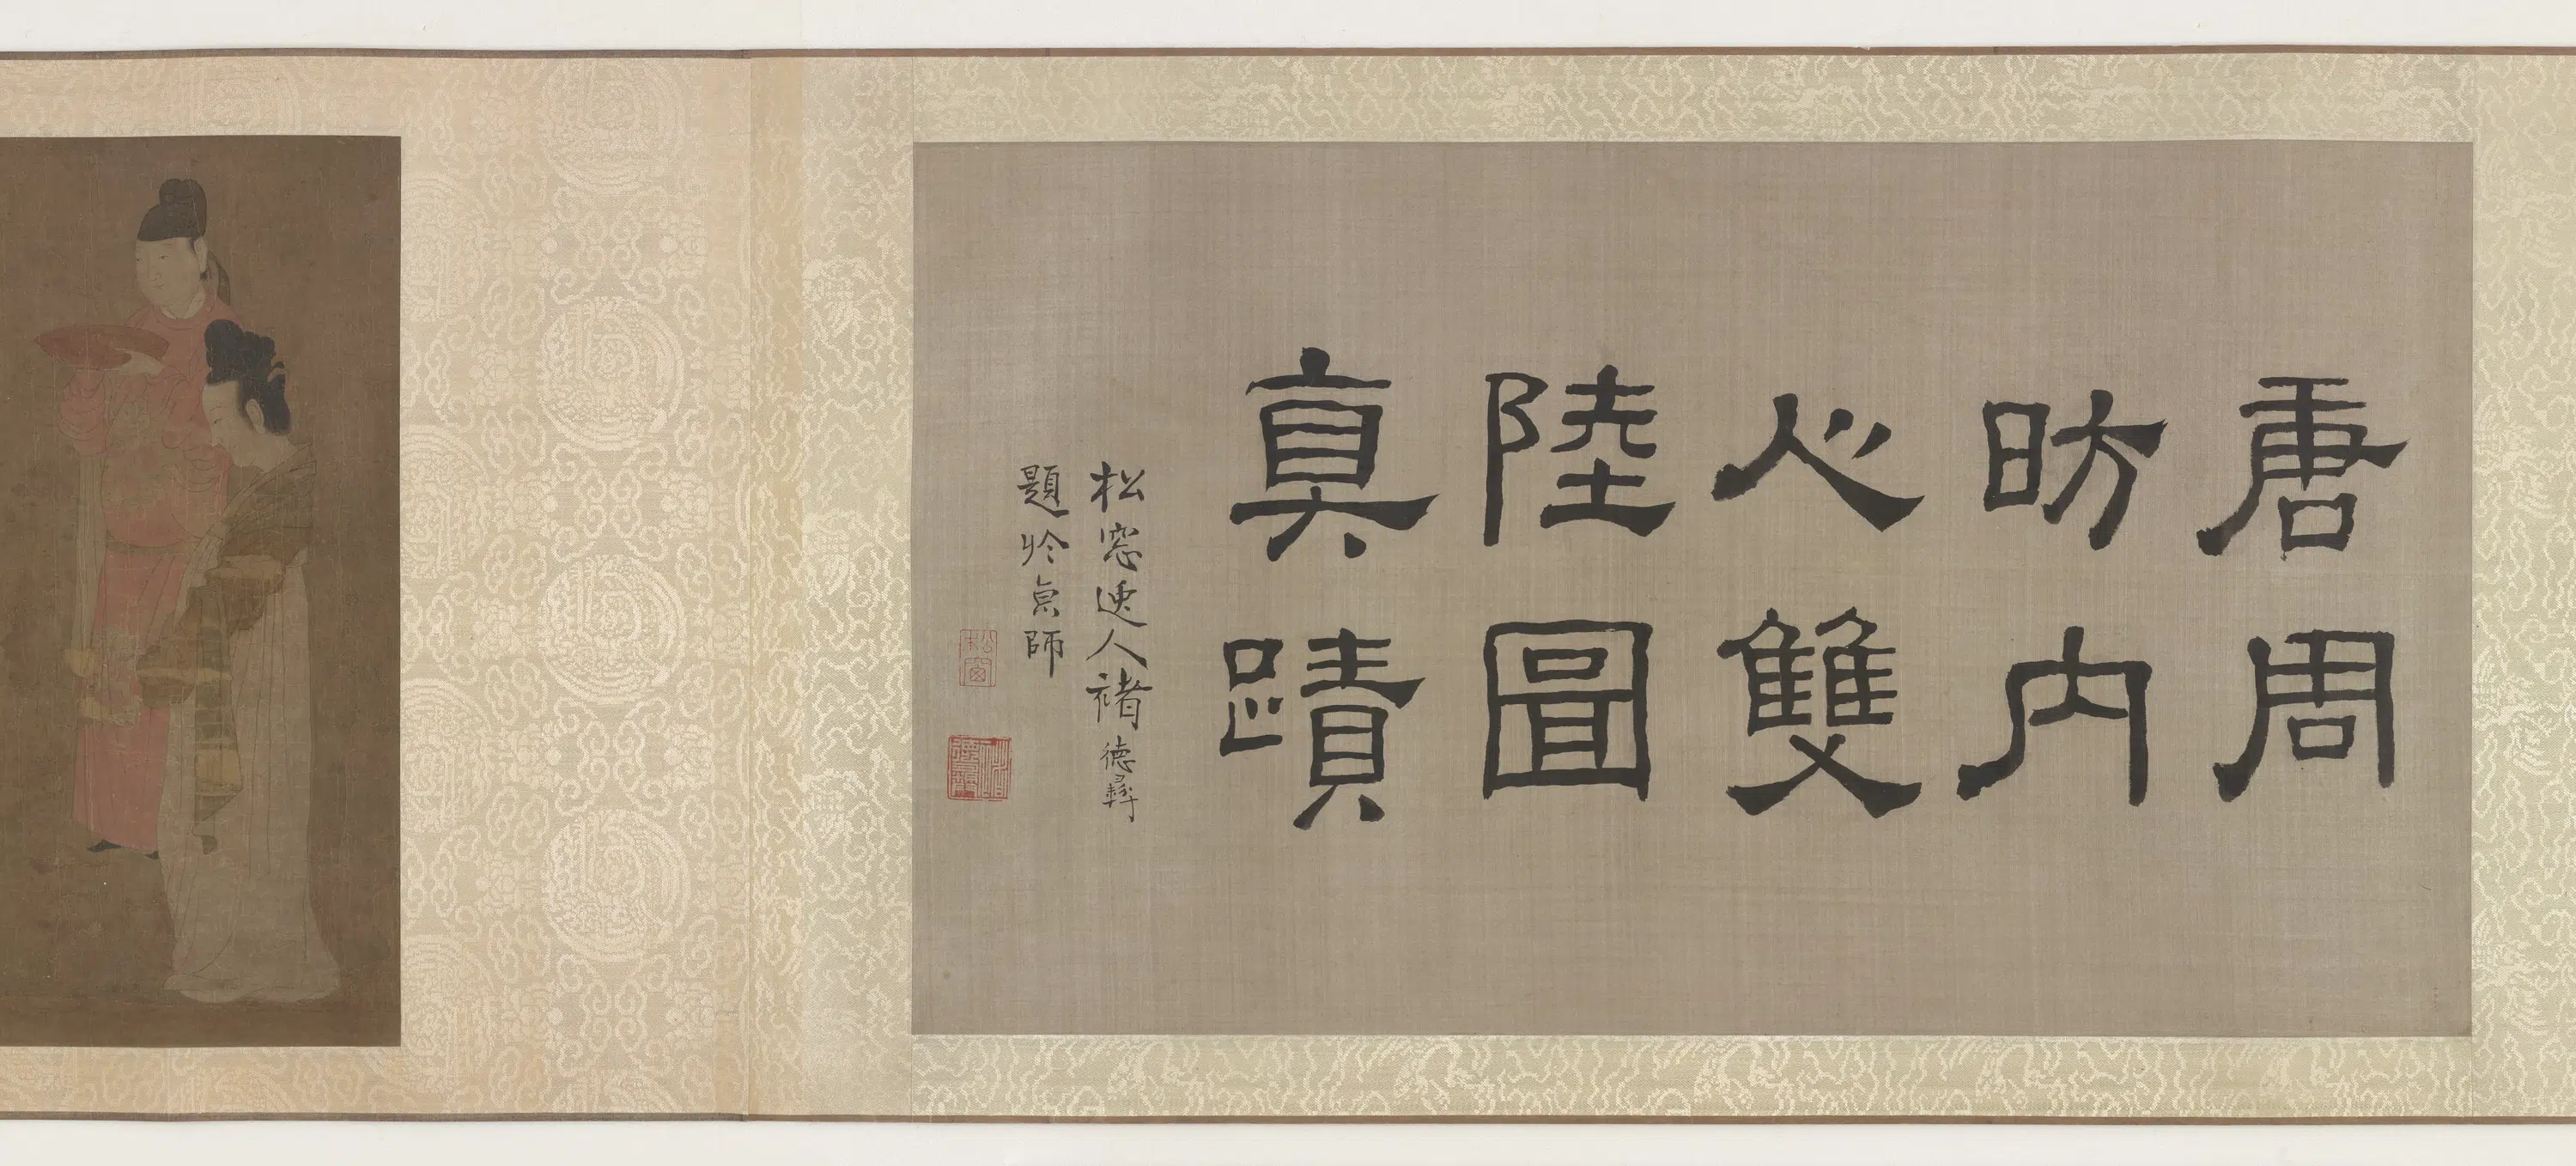 唐周
昉内
人雙
陸圖
真蹟
松窓逸人褚德彝
題於京師
松窗